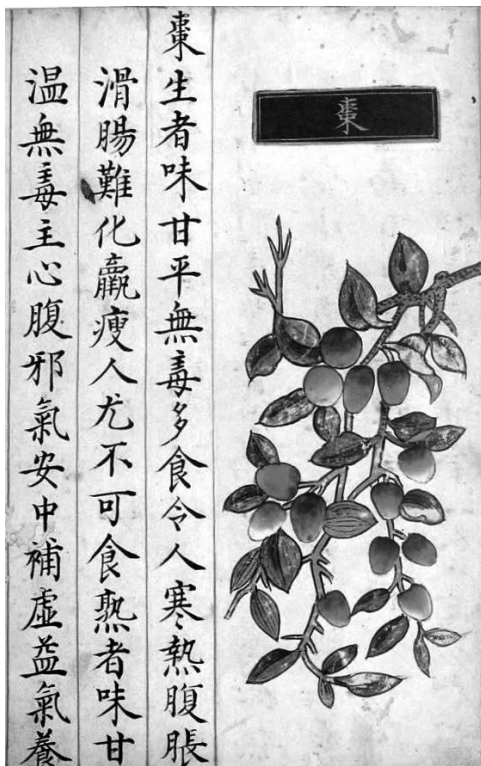 棗
棗生者味甘平無毒多食令人寒熱腹脹
滑腸難化羸瘦人尤不可食熟者味甘
温無毒主心腹邪氣安中補虛益氣養